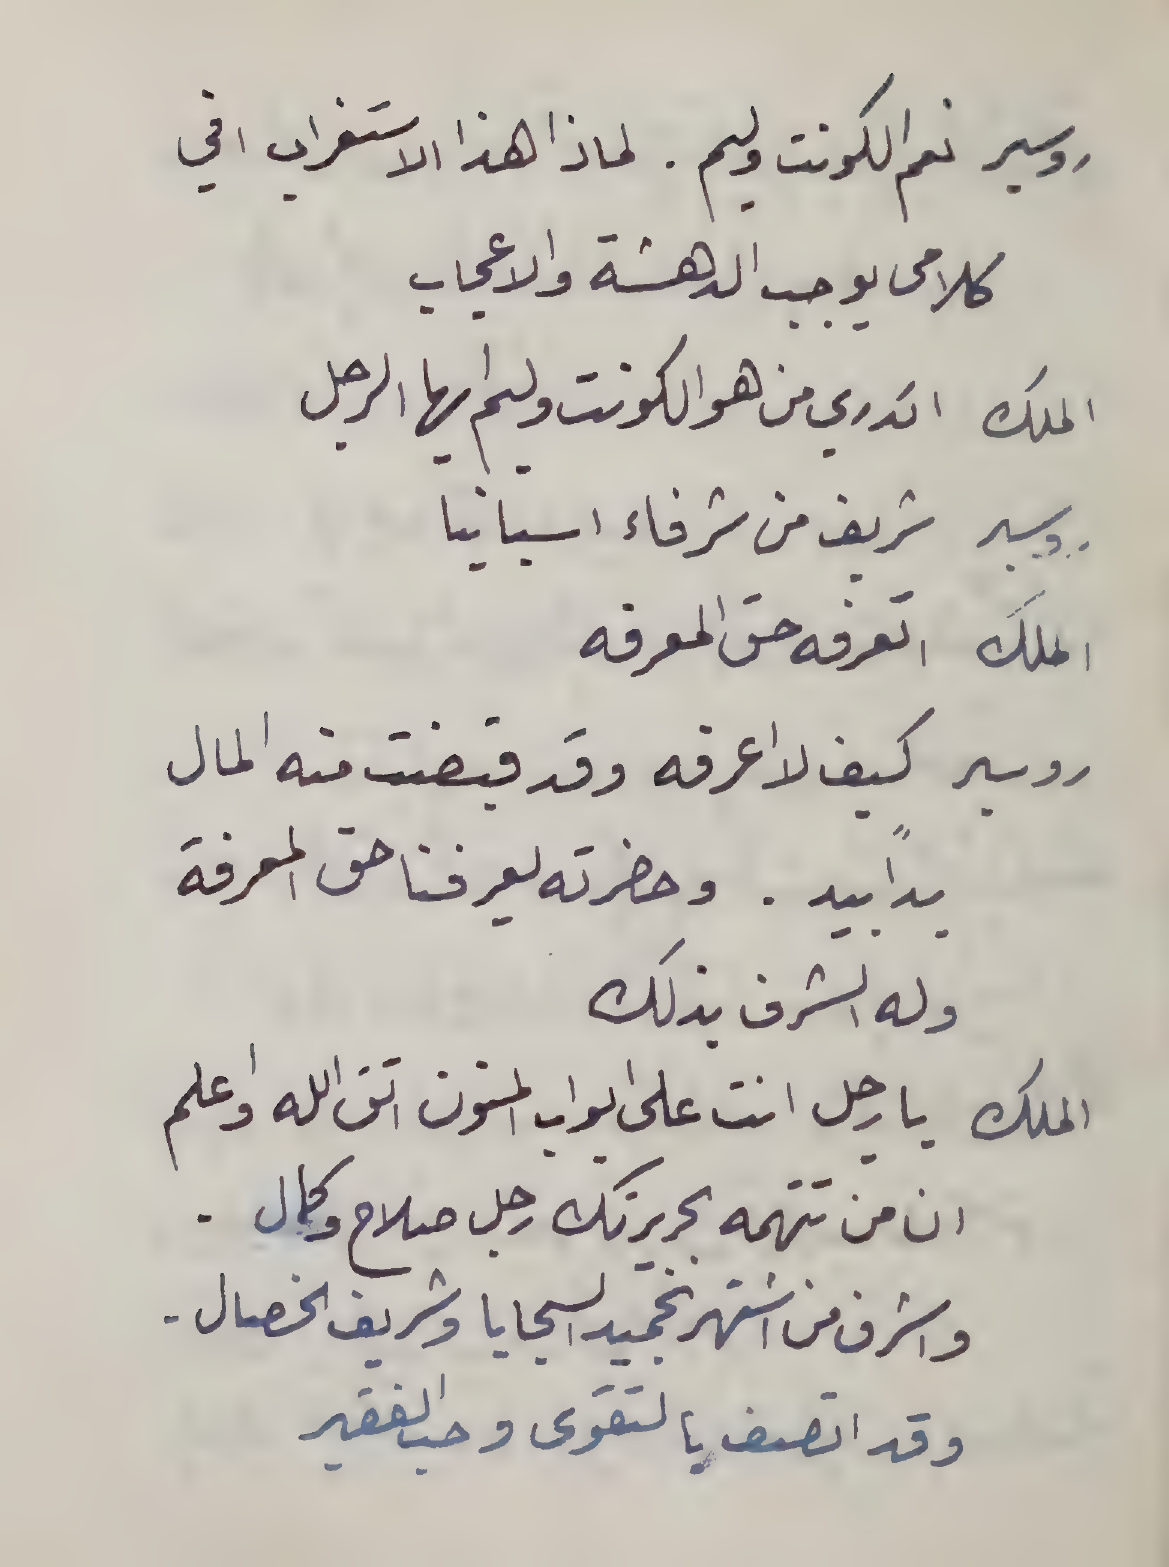 روبير نعم الكونت وليم . لماذا هذا الاستغراب افي
كلامي يوجب الدهشة والاعجاب
الملك اتدري من هو الكونت وليم ايها الرجل
روبير شريف من شرفاء اسبانيا
الملك اتعرفه حق المعرفه
روبير كيف لا اعرفه وقد قبضت منه المال
يداً بيد . وحضرته يعرفنا حق المعرفة
وله الشرف بذلك
الملك يا رجل انت على ابواب المنون اتق الله واعلم
ان من تتهمه بجريرتك رجل صلاح وكمال .
واشرف من اشتهر بحميد السجايا وشريف الخصال .
وقد اتصف بالتقوى وحب الفقير